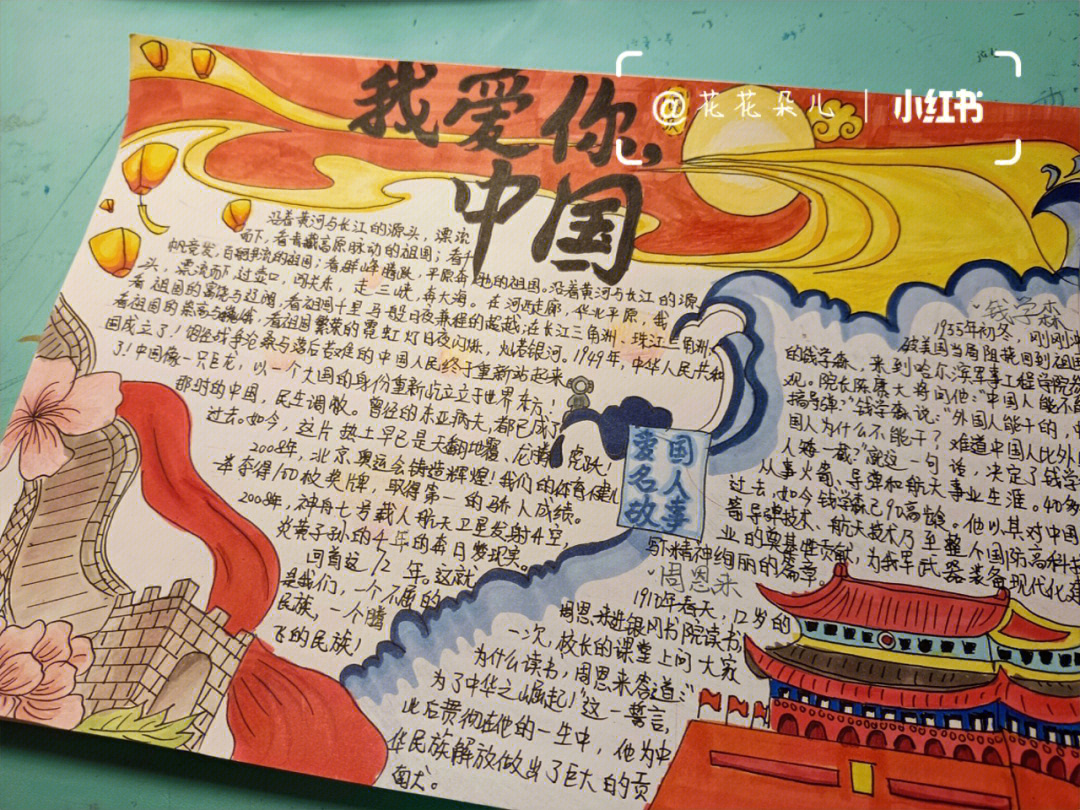 @花花朵儿 | 小红书
我爱你,
中国
沿着黄河与长江的源头，漂流
而下，看青藏高原脉动的祖国；看千
帆竞发，百舸争流的祖国；看群峰腾跃，平原奔驰的祖国。沿着黄河与长江的源
头，漂流而下过壶口，闯关东，走三峡，奔大海。在河西走廊，华北平原，我
看祖国的富饶与辽阔，看祖国千里马般日夜兼程的超越；在长江三角洲、珠江三角洲，
看祖国的崇高与巍峨，看祖国繁荣的霓虹灯日夜闪烁，灿若银河。1949年，中华人民共和
国成立了！饱经战争沧桑与落后苦难的中国人民终于重新站起来
了！中国像一只巨龙，以一个大国的身份重新屹立于世界东方！
那时的中国，民生凋敝。曾经的东亚病夫，都已成了
过去。如今，这片热土早已是天翻地覆，龙腾虎跃！
2008年，北京奥运会铸造辉煌！我们的体育健儿
一举夺得100枚奖牌，取得第一的骄人成绩。
2008年，神舟七号载人航天卫星发射升空，
炎黄子孙的4年的奔日梦现实。
回首这12年。这就
是我们，一个不屈的
民族，一个腾
飞的民族！
爱国
名人
故事
"钱学森
1955年初冬，刚刚冲
破美国当局阻挠回到祖国
的钱学森，来到哈尔滨军事工程学院参
观。院长陈赓大将问他："中国人能不能
搞导弹？"钱学森说："外国人能干的，中
国人为什么不能干？难道中国人比外国
人矮一截？"就这一句话，决定了钱学
从事火箭、导弹和航天事业生涯。40多
过去，如今钱学森已90高龄。他以其对中国
等导弹技术、航天技术乃至整个国防高科技
业的奠基性贡献，为我军武器装备现代化建
写精神绚丽的篇章。
"周恩来
1910年春天，12岁的
周恩来进银冈书院读书，
一次，校长的课堂上问大家
为什么读书，周恩来答道："
为了中华之崛起！"这一誓言，
此后贯彻在他的一生中，他为中
华民族解放做出了巨大的贡
献。